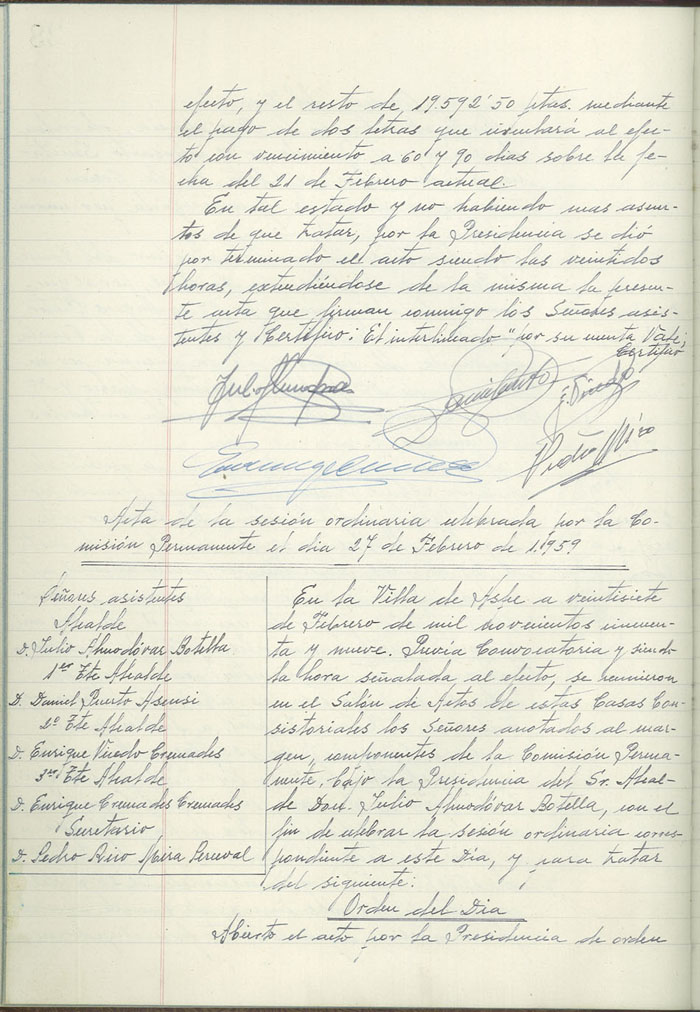 efecto, y el resto de 19.592'50 ptas. mediante
el pago de dos letras que                 al efec-
to con vencimiento a 60 y 90 dias sobre la fe-
cha del 21 de Febrero actual.
En tal estado y no habiendo mas asun-
tos de que tratar, por la Presidencia se dió
por terminado el acto siendo las veintidos
horas, extendiéndose de la misma la presen-
te acta que firman conmigo los Señores asis-
tentes y Certifico: El interlineado "por su cuenta Vale,
Certifico
Acta de la sesión ordinaria celebrada por la Co-
misión Permanente el dia 27 de Febrero de 1.959
Señores asistentes
Alcalde
D. Julio Almodóvar Botella
1er Tte Alcalde
D. Daniel Puerto Asensi
2º Tte Alcalde
D. Enrique Viñedo Cremades
3er Tte Alcalde
D. Enrique Cremades Cremades
Secretario
D. Pedro Rico Mira Perceval
En la Villa de Aspe a veintisiete
de Febrero de mil novecientos cincuen-
ta y nueve. Previa Convocatoria y siendo
la hora señalada al efecto, se reunieron
en el Salón de Actos de estas Casas Con-
sistoriales los Señores anotados al mar-
gen, componentes de la Comisión Perma-
nente, bajo la Presidencia del Sr. Alcal-
de Don Julio Almodóvar Botella, con el
fin de celebrar la sesión ordinaria corres-
pondiente a este Dia, y para tratar
del siguiente:
Orden del Dia
Abierto el acto por la Presidencia de orden